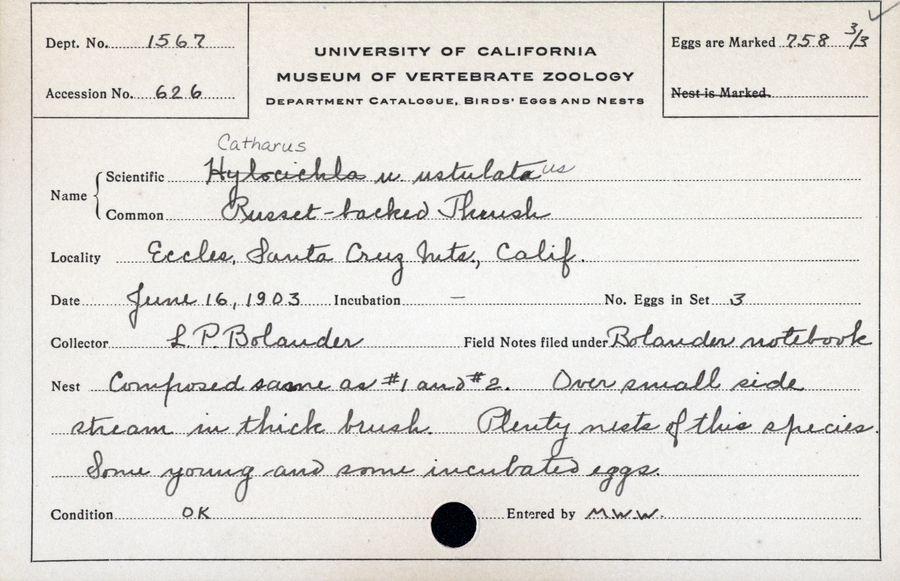 Dept. No. 1567
Accession No. 626
UNIVERSITY OF CALIFORNIA
MUSEUM OF VERTEBRATE ZOOLOGY
DEPARTMENT CATALOGUE, BIRDS' EGGS AND NESTS
Eggs are Marked 758 3/3
Nest is Marked
Catharus
Name Scientific Hylocichla u. ustulata us
Common Russet-backed Thrush
Locality Eccles, Santa Cruz Mts., Calif.
Date June 16, 1903 Incubation — No. Eggs in Set 3
Collector L. P. Bolander Field Notes filed under Bolander notebook
Nest Composed same as #1 and #2. Over small side
stream in thick brush. Plenty nests of this species.
Some young and some incubated eggs.
Condition OK Entered by M.W.W.